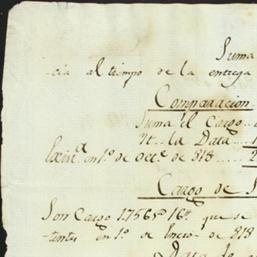 Suma
cia al tiempo de la entrega
Comparacion
Suma el Cargo
Yt. la Data
Exist.ª en 1.º de Oct.e de 818
Cargo de
Son Cargo 17565 que se
tentes en 1.º de Enero de 818